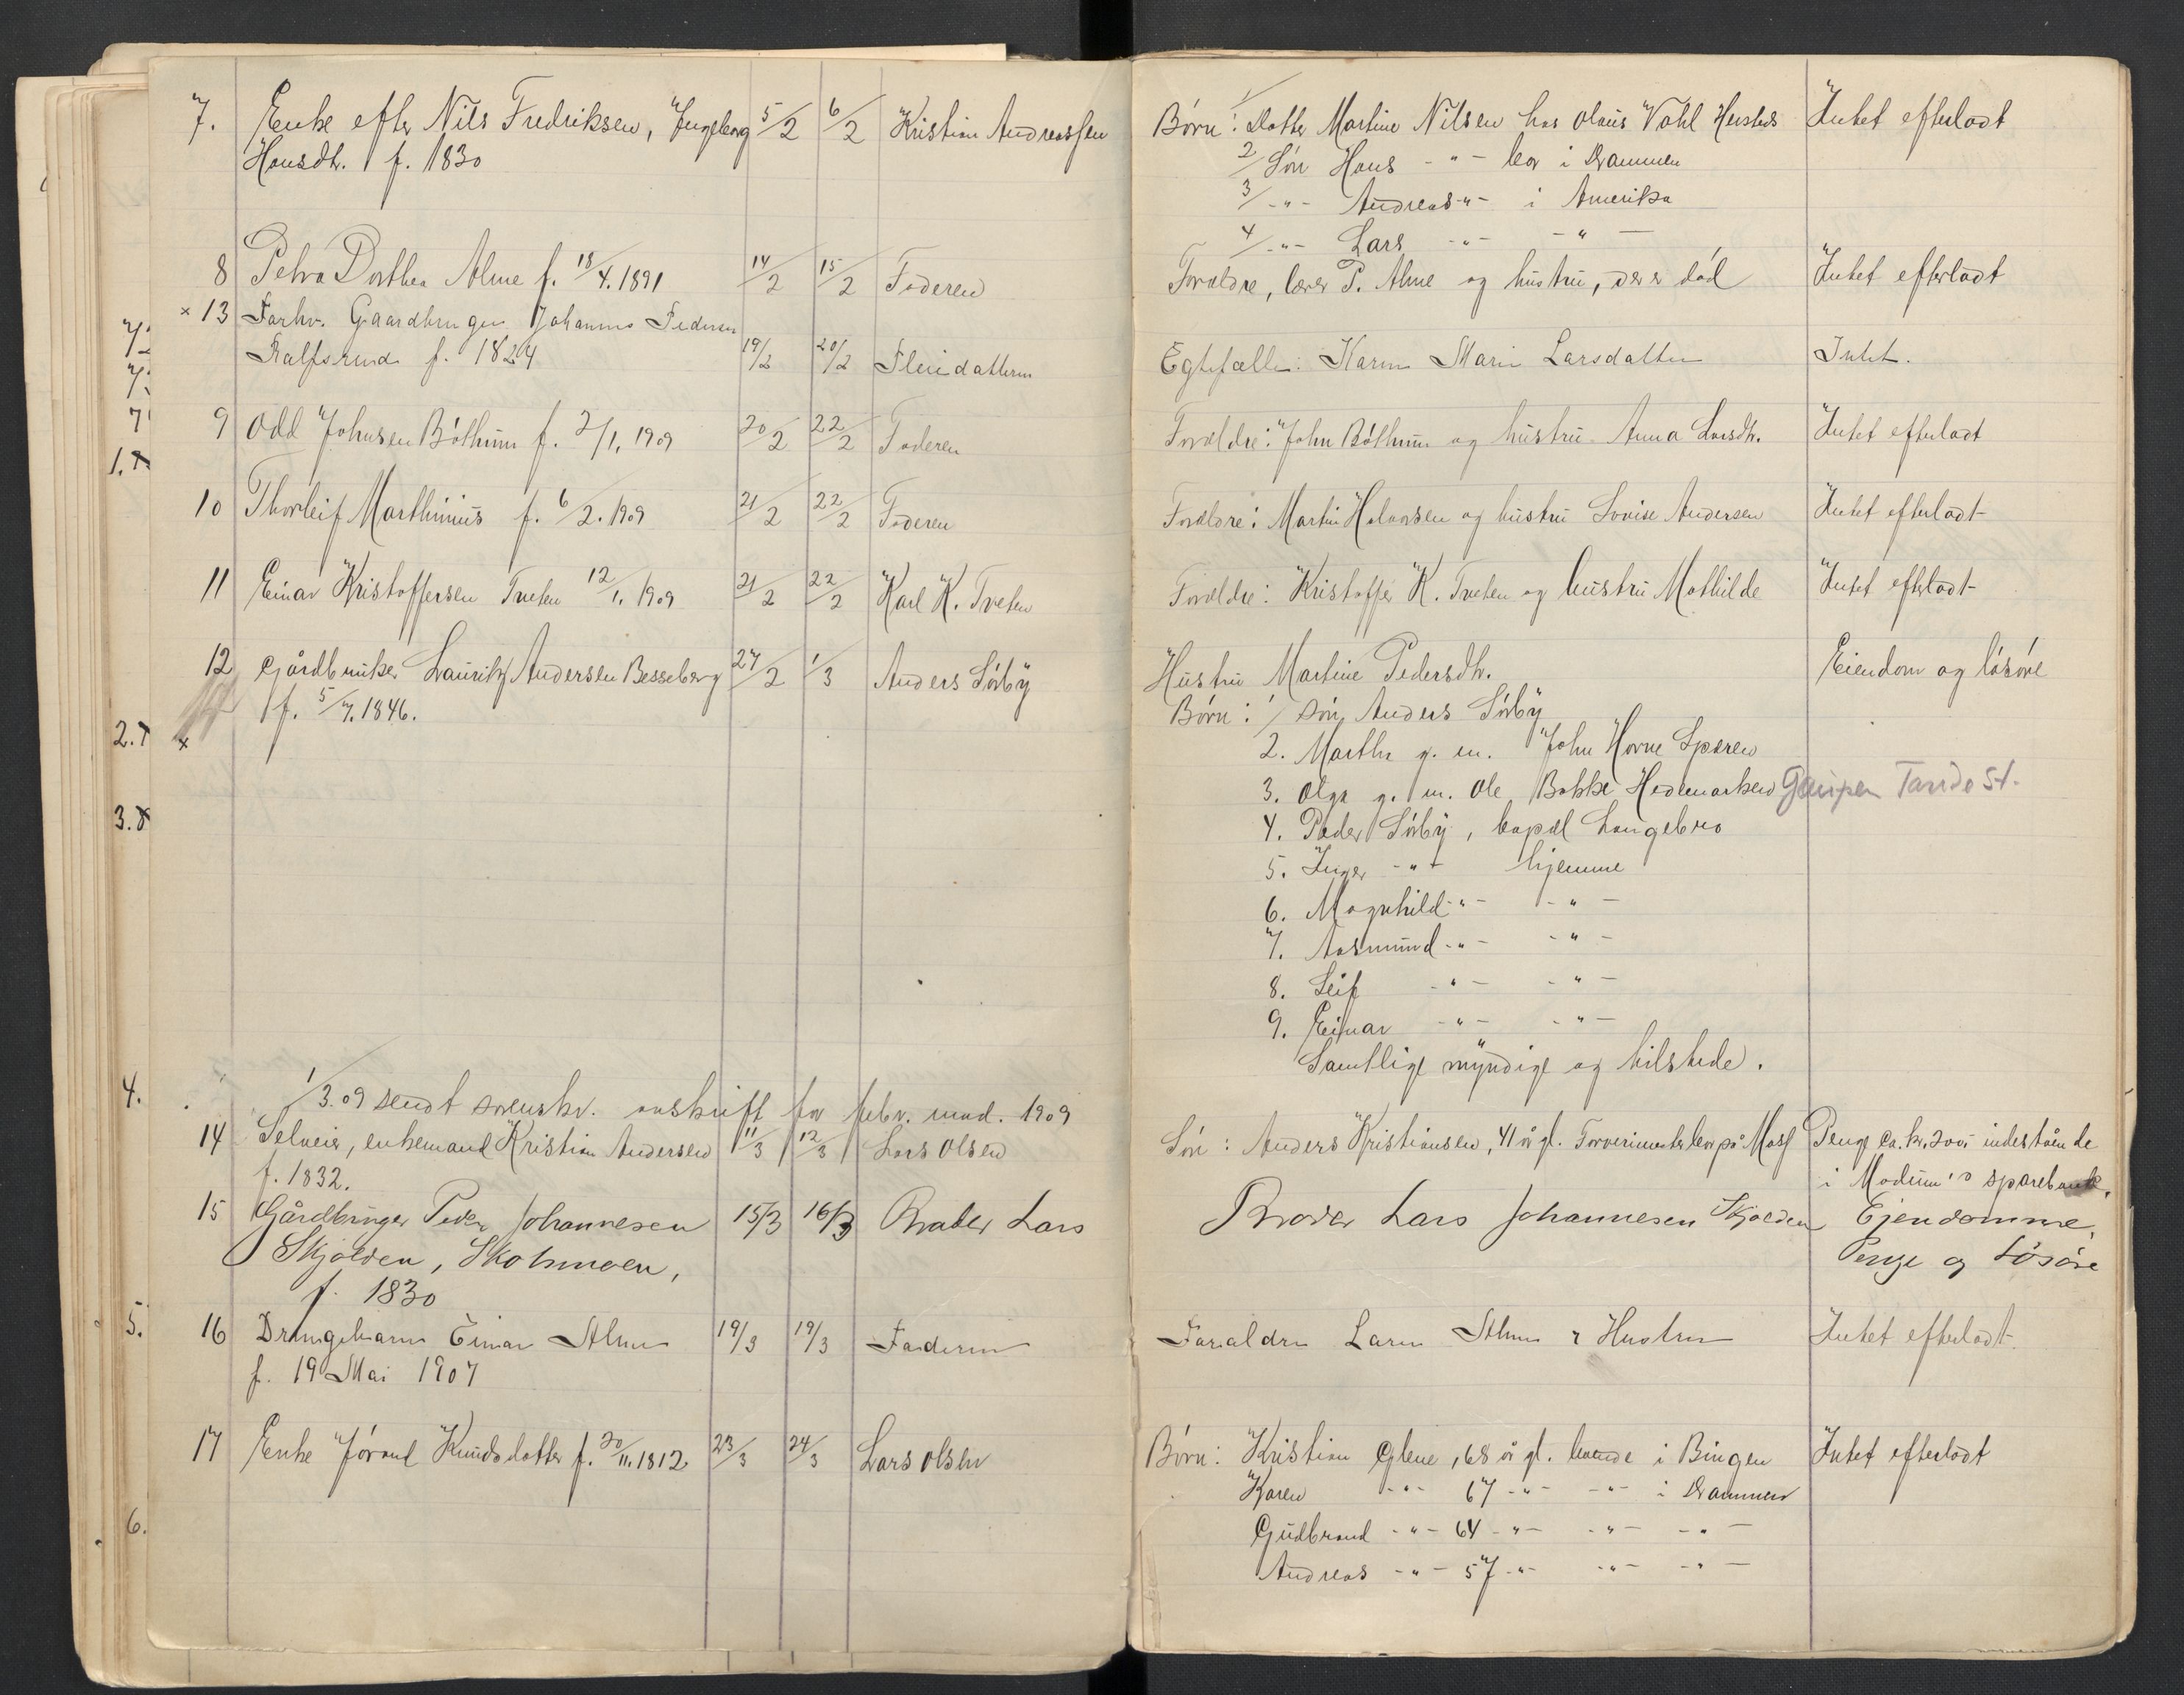 7. Enke efter Nils Fredriksen, Ingeborg 5/2 6/2 Kristian Andreassen
Hansdtr. f. 1830
Børn: 1/ Datter Martine Nilsen hos Olaus Vahl Intet efterladt
2/ Søn Hans -"- bor i Drammen
3/ -"- Andreas -"- i Amerika
4/ -"- Lars -"- -"-
8 Petra Dorthea Alme f. 18/4. 1891 14/2 15/2 Faderen
Forældre, lærer P. Alme og hustru, der er død Intet efterladt
× 13 Forhv. Gaardbruger Johannes Pedersen
Kalfsrud f. 1824 19/2 20/2 Pleiedatteren
Egtefælle: Karen Marie Larsdatter Intet.
9 Odd Johnsen Bøthun f. 2/1. 1909 20/2 22/2 Faderen
Forældre: John Bøthun og hustru Anna Larsdtr. Intet efterladt
10 Thorleif Marthinius f. 6/2. 1909 21/2 22/2 Faderen
Forældre: Martin Halvorsen og hustru Lovise Andersen Intet efterladt
11 Einar Kristoffersen Tveten 12/1. 1909 21/2 22/2 Karl K. Tveten
Forældre: Kristoffer K. Tveten og hustru Mathilde Intet efterladt
12 Gårdbruker Lauritz Andersen Besseberg 27/2 1/3 Anders Sørby
f. 5/7. 1846.
×
Hustru Martine Pedersdtr. Eiendom og løsøre
Børn: 1/ søn Anders Sørby
2. Marthe g. m. John Horne Sparen
3. Olga g. m. Ole Bakke Hedemarken Gaupen Tande St.
4. Peder Sørby, bopæl Langebro
5. Inger -"- hjemme
6. Magnhild -"- -"-
7. Aasmund -"- -"-
8. Leif -"- -"-
9. Einar -"- -"-
Samtlige myndige og tilstede.
1/3. 09 sendt sorenskr. avskrift for febr. mnd. 1909
14 Selveier, enkemand Kristian Andersen 11/3 12/3 Lars Olsen
f. 1832.
Søn: Anders Kristiansen, 41 år gl. Farverimester bor på Moss Penge ca. kr. 200,- indestående
i Modum's sparebank.
15 Gårdbruger Peder Johannesen 15/3 16/3 Broder Lars
Skjolden, Skotsmoen,
f. 1830
Broder Lars Johannesen Skjolden Ejendomme,
Penge og Løsøre
16 Drengebarn Einar Alme 19/3 19/3 Faderen
f. 19 Mai 1907
Forældre Lærer Alme & Hustru Intet efterladt.
17 Enke Jørand Knudsdatter f. 20/11. 1812 23/3 24/3 Lars Olsen
Børn: Kristian Glene, 68 år gl. boende i Bingen Intet efterladt
Karen -"- 67 -"- -"- i Drammen
Gudbrand -"- 64 -"- -"- -"-
Andreas -"- 57 -"- -"- -"-
7
7
7
1.
2.
3.
4.
5.
6.